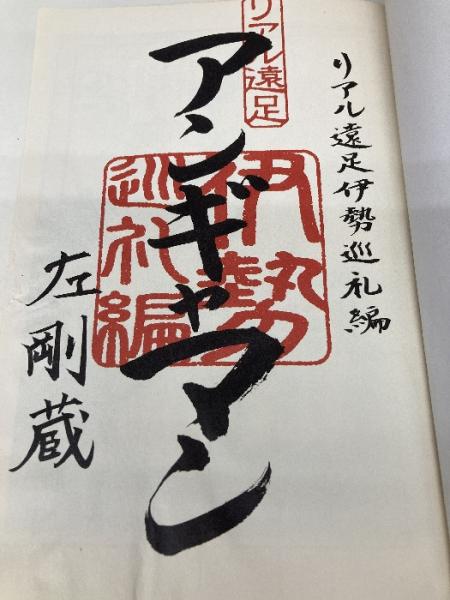 リアル遠足伊勢巡礼編
リアル遠足
アンギャマン
伊勢
巡礼編
左剛蔵